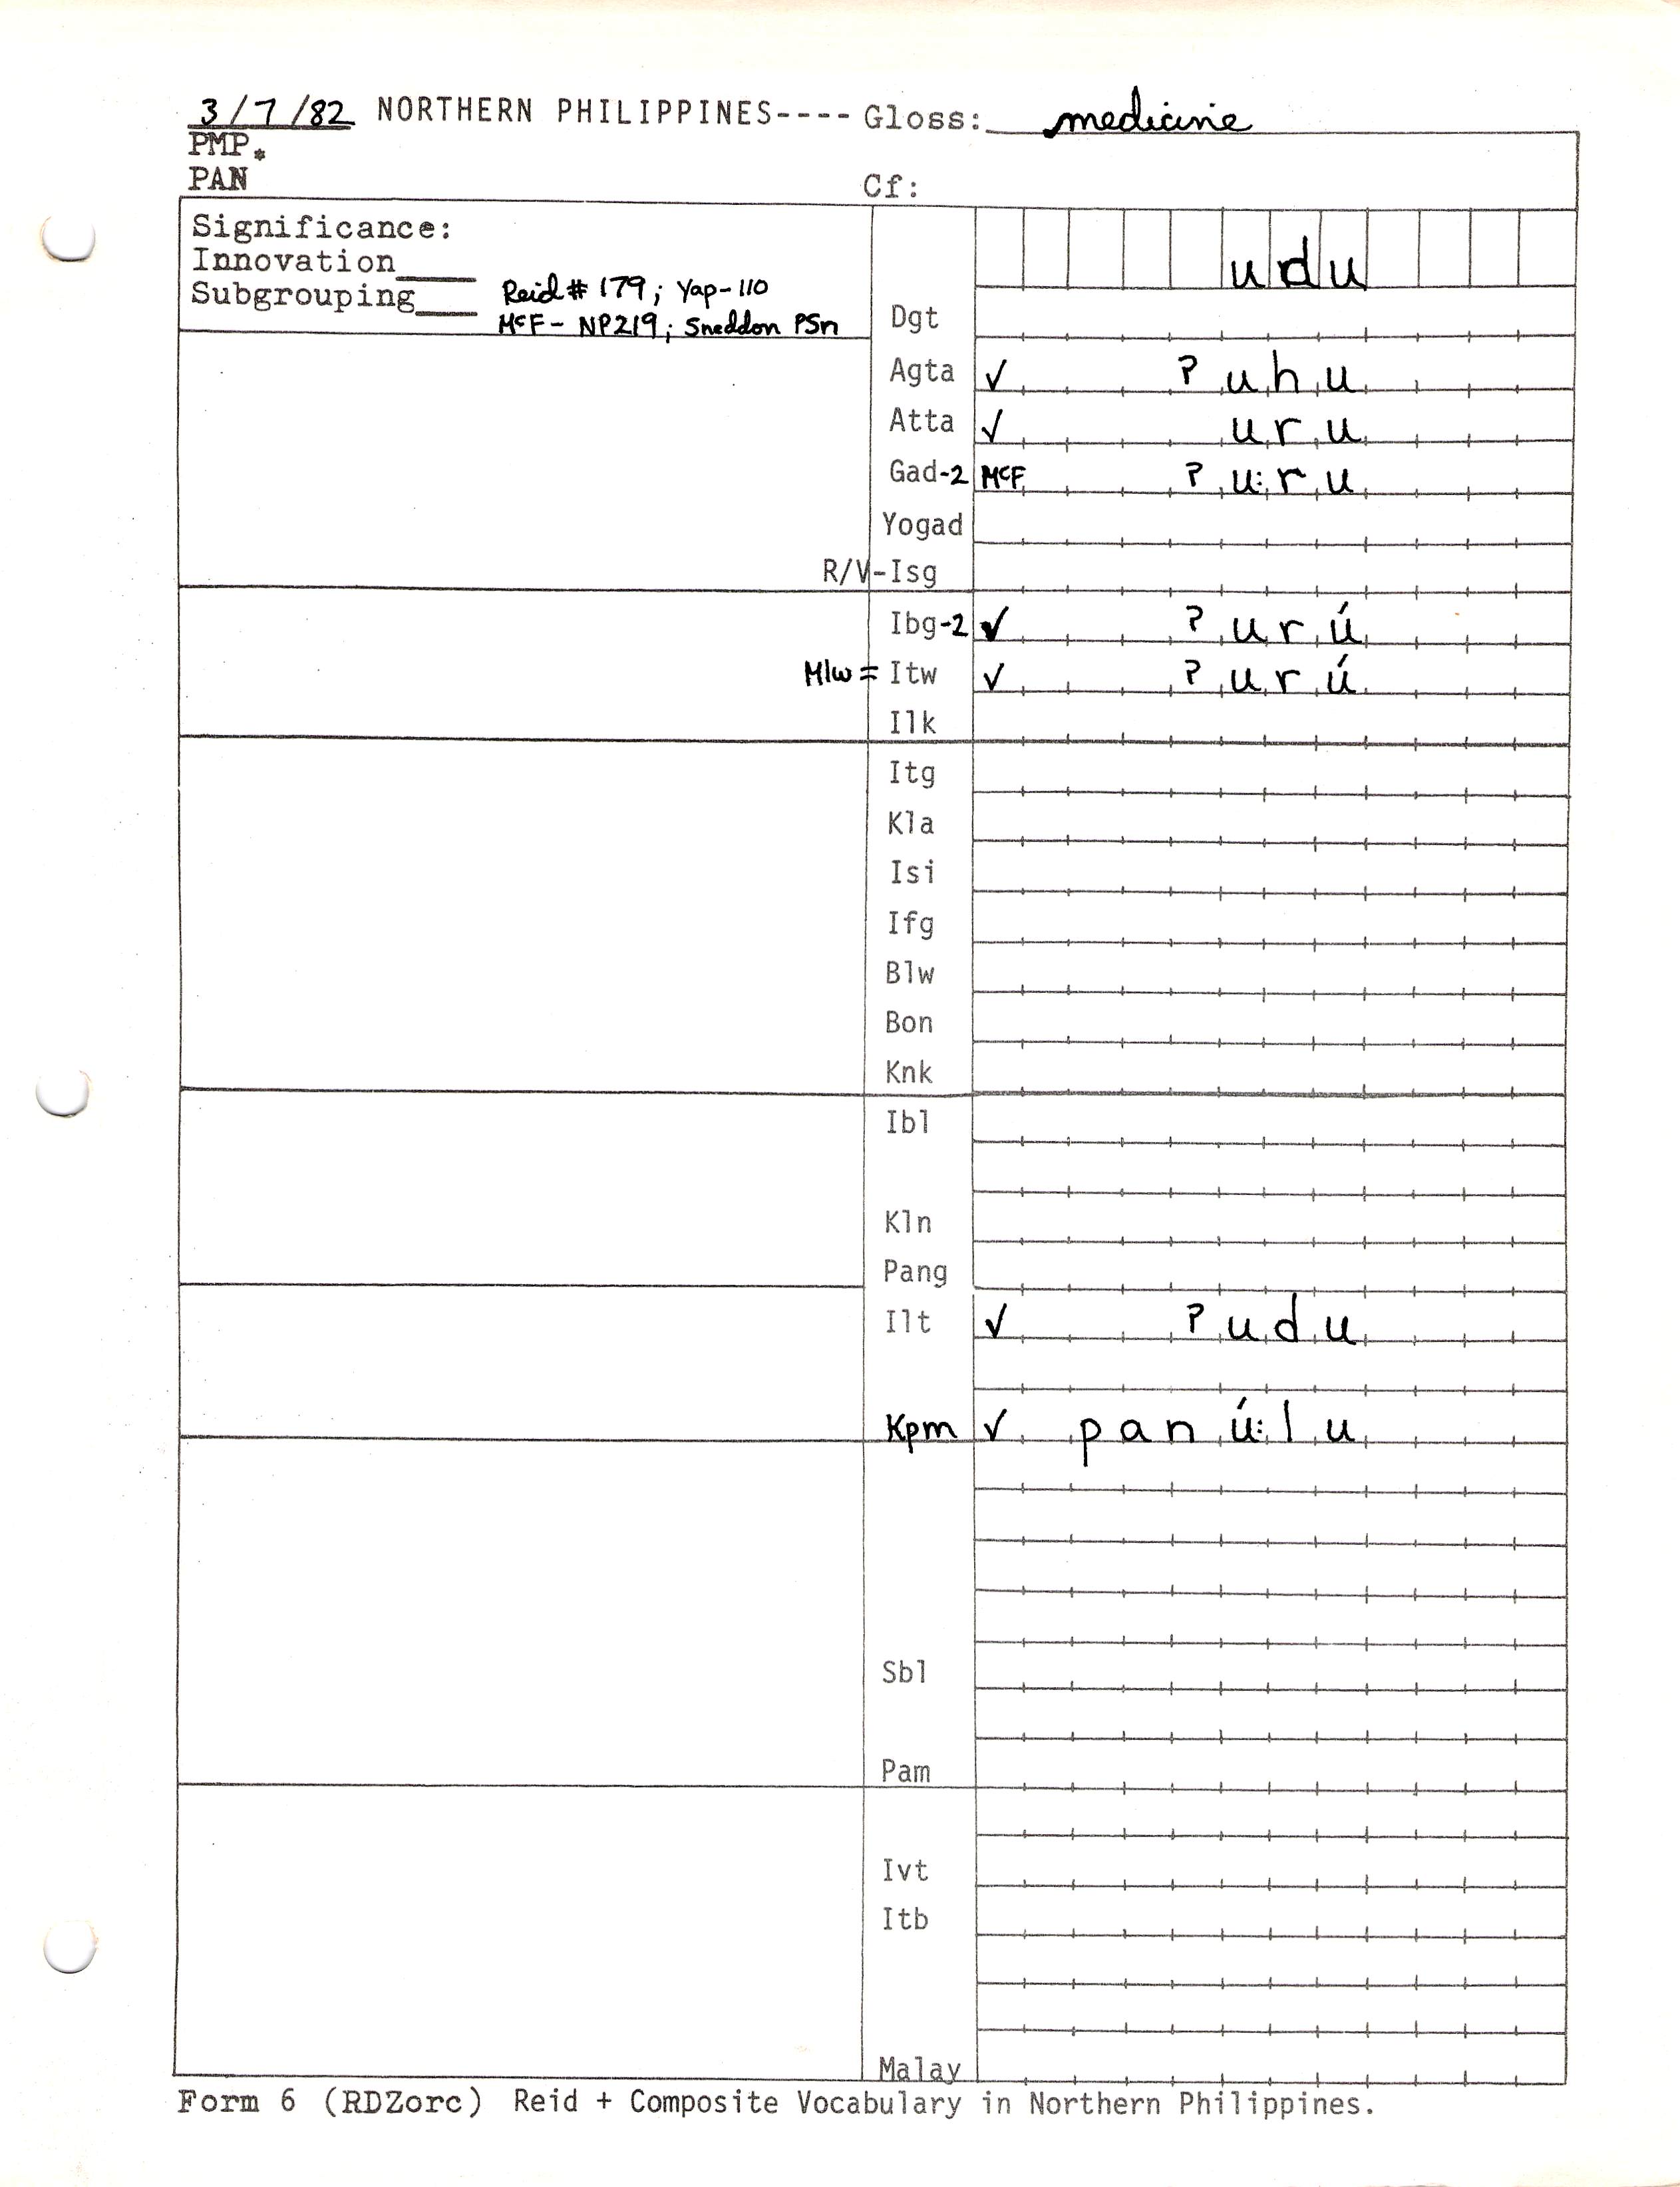 3/7/82 NORTHERN PHILIPPINES---- Gloss: medicine
PMP*
PAN Cf:
Significance:
Innovation____
Subgrouping____ Reid # 179; Yap-110
McF- NP219; Sneddon PSn
udu
Dgt
Agta ✓ ʔuhu
Atta ✓ uru
Gad-2 McF ʔu:ru
Yogad
R/V-Isg
Ibg-2 ✓ ʔurú
Mlw = Itw ✓ ʔurú
Ilk
Itg
Kla
Isi
Ifg
Blw
Bon
Knk
Ibl
Kln
Pang
Ilt ✓ ʔudu
Kpm ✓ panú:lu
Sbl
Pam
Ivt
Itb
Malay
Form 6 (RDZorc) Reid + Composite Vocabulary in Northern Philippines.